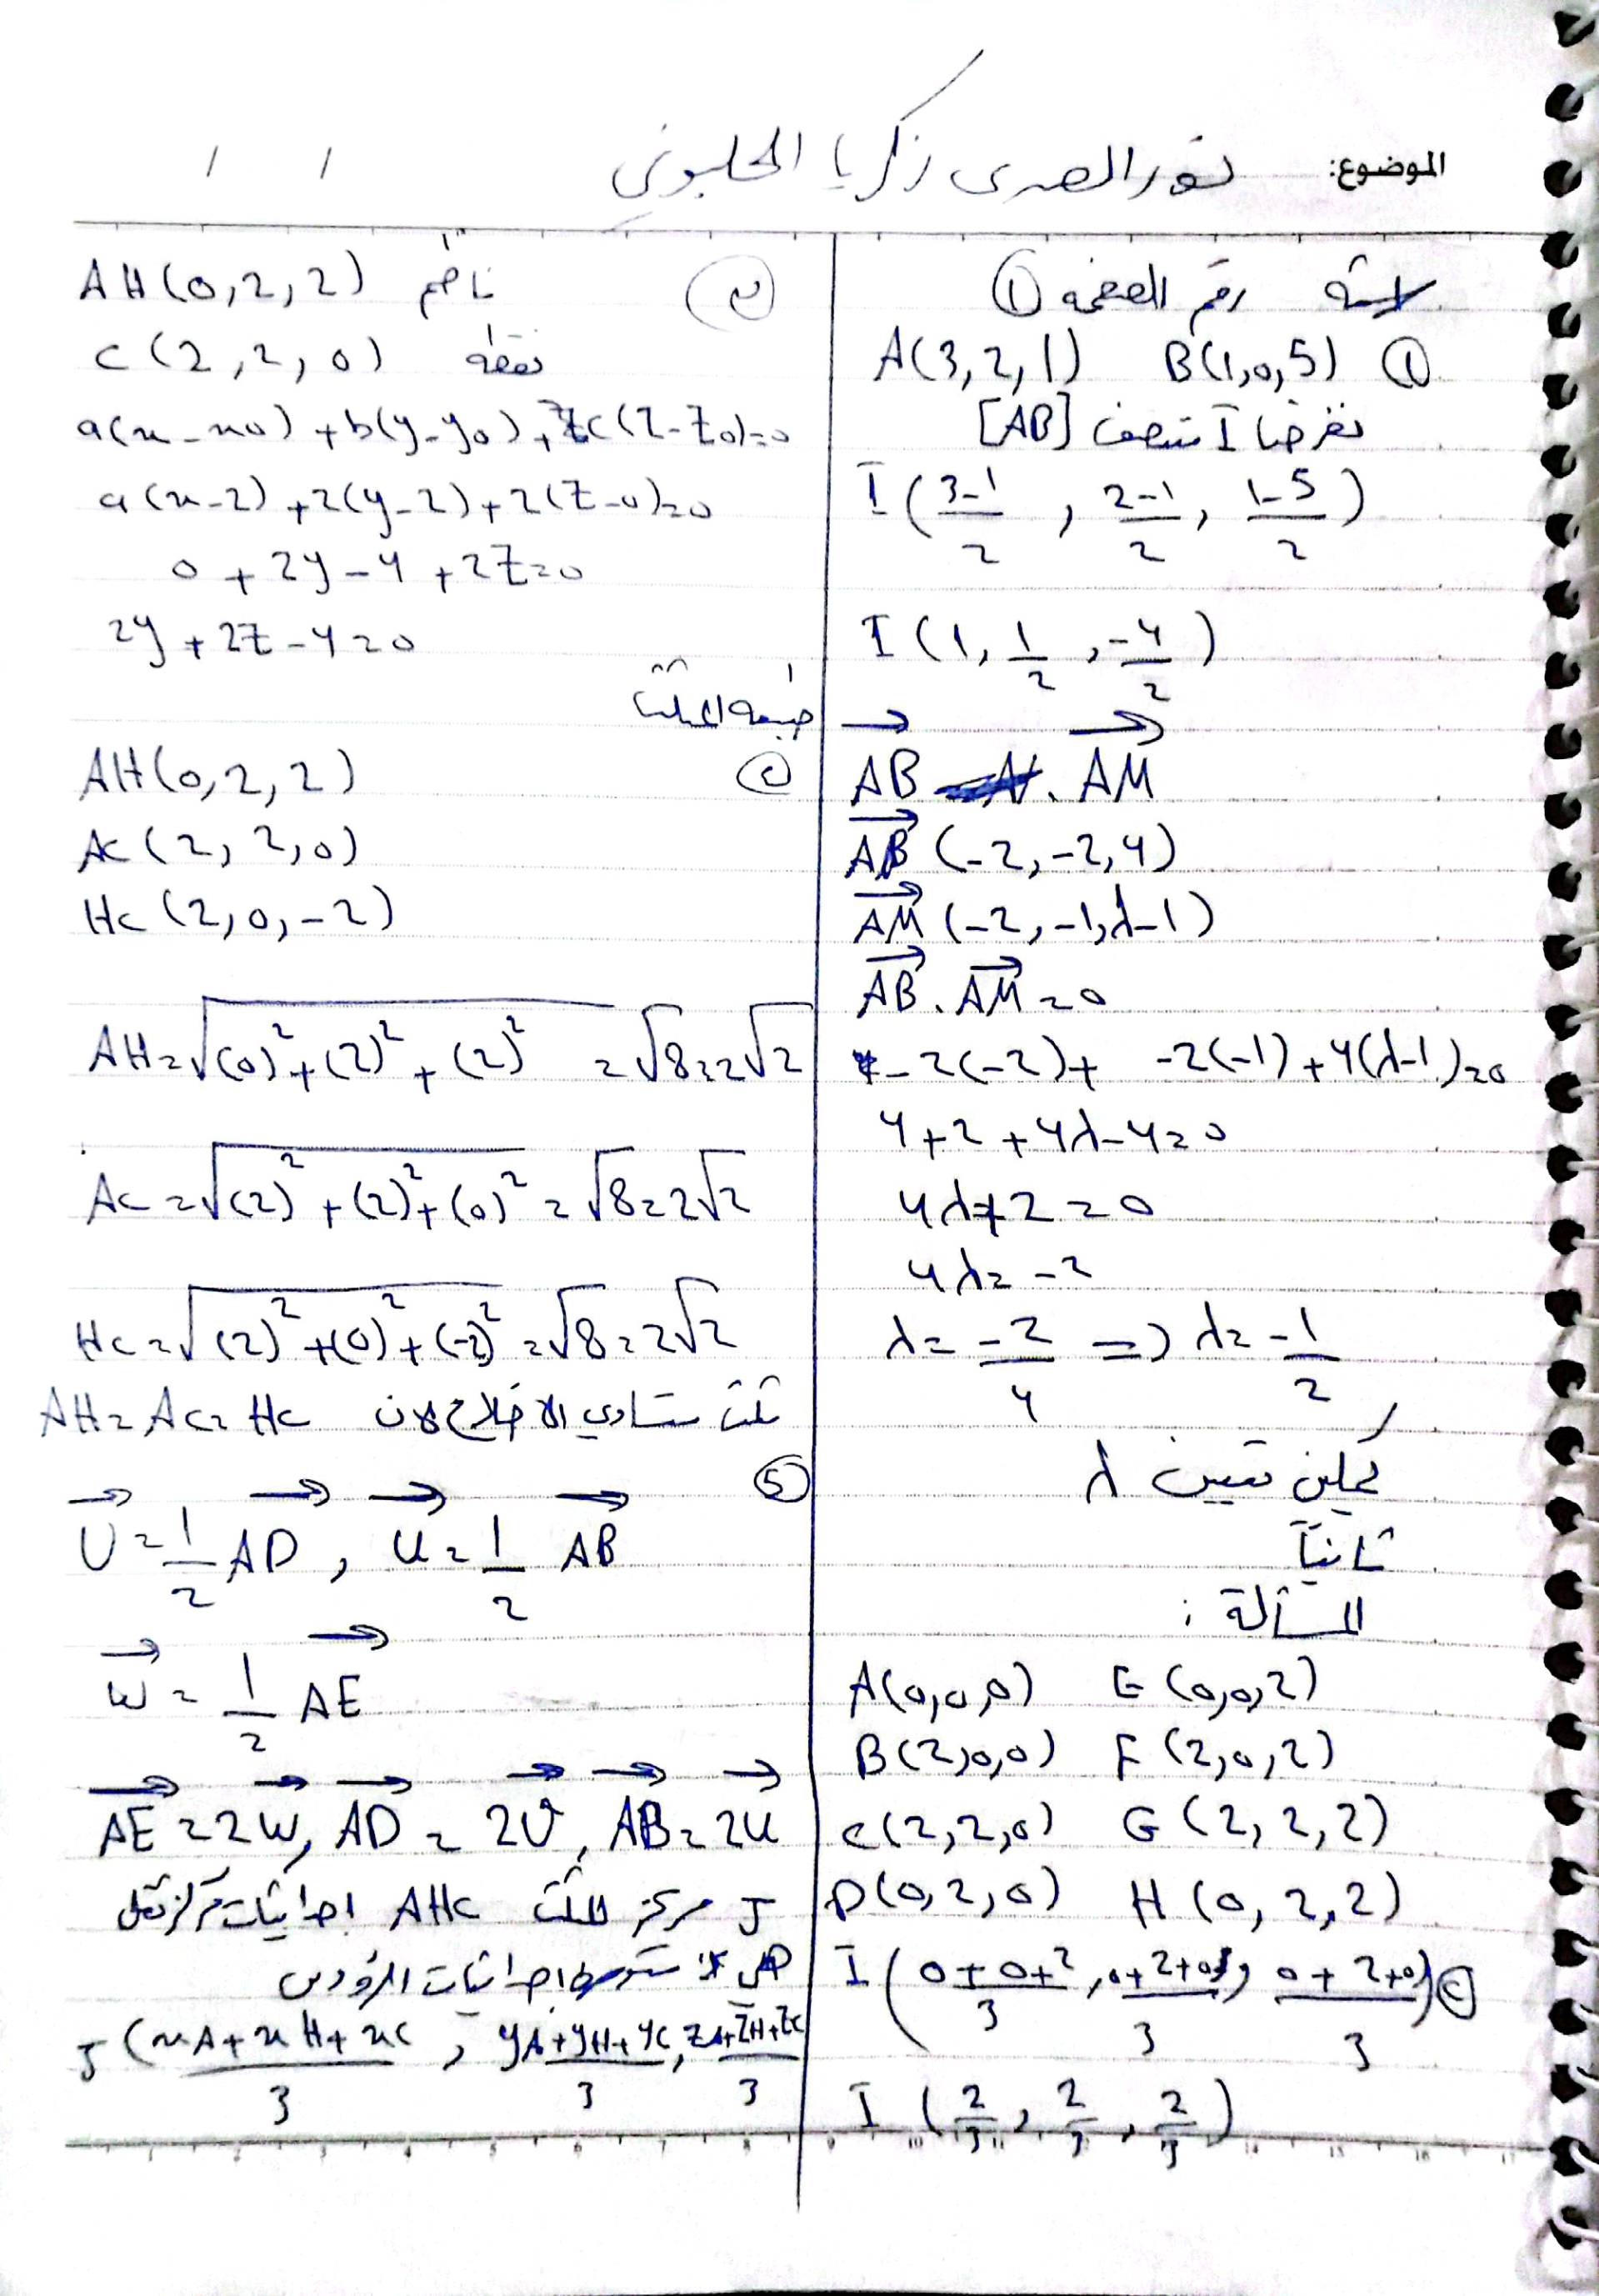 الموضوع: نور الهدى زكريا الحلبوني / /
رقم الصفحة ①
① A(3,2,1) B(1,0,5)
نفرض I منتصف [AB]
I (3-1/2 , 2-1/2 , 1-5/2)
I (1, 1/2 , -4/2)
AB . AM
AB (-2,-2,4)
AM (-2,-1,λ-1)
AB . AM = 0
-2(-2)+ -2(-1)+4(λ-1)=0
4+2+4λ-4=0
4λ+2=0
4λ=-2
λ= -2/4 => λ= -1/2
يمكن تعيين λ
ثانياً
المسألة :
A(0,0,0) E(0,0,2)
B(2,0,0) F(2,0,2)
C(2,2,0) G(2,2,2)
D(0,2,0) H(0,2,2)
I (0+0+2/3 , 0+2+0/3 , 0+2+0/3)
I (2/3 , 2/3 , 2/3)
AH(0,2,2) ناظم
C(2,2,0) نقطة
a(x-x0)+b(y-y0)+c(z-z0)=0
a(x-2)+2(y-2)+2(z-0)=0
0+2y-4+2z=0
2y+2z-4=0
طبيعة المثلث
AH(0,2,2)
AC(2,2,0)
HC(2,0,-2)
AH=√(0)²+(2)²+(2)² =√8=2√2
AC=√(2)²+(2)²+(0)² =√8=2√2
HC=√(2)²+(0)²+(-2)² =√8=2√2
مثلث متساوي الاضلاع لان AH=AC=HC
⑤
V=1/2 AD , U=1/2 AB
W=1/2 AE
AE=2W, AD=2V, AB=2U
J مركز المثلث AHC احداثيات مركز ثقل
احداثيات الرؤوس
J (xA+xH+xC/3 , yA+yH+yC/3 , zA+zH+zC/3)